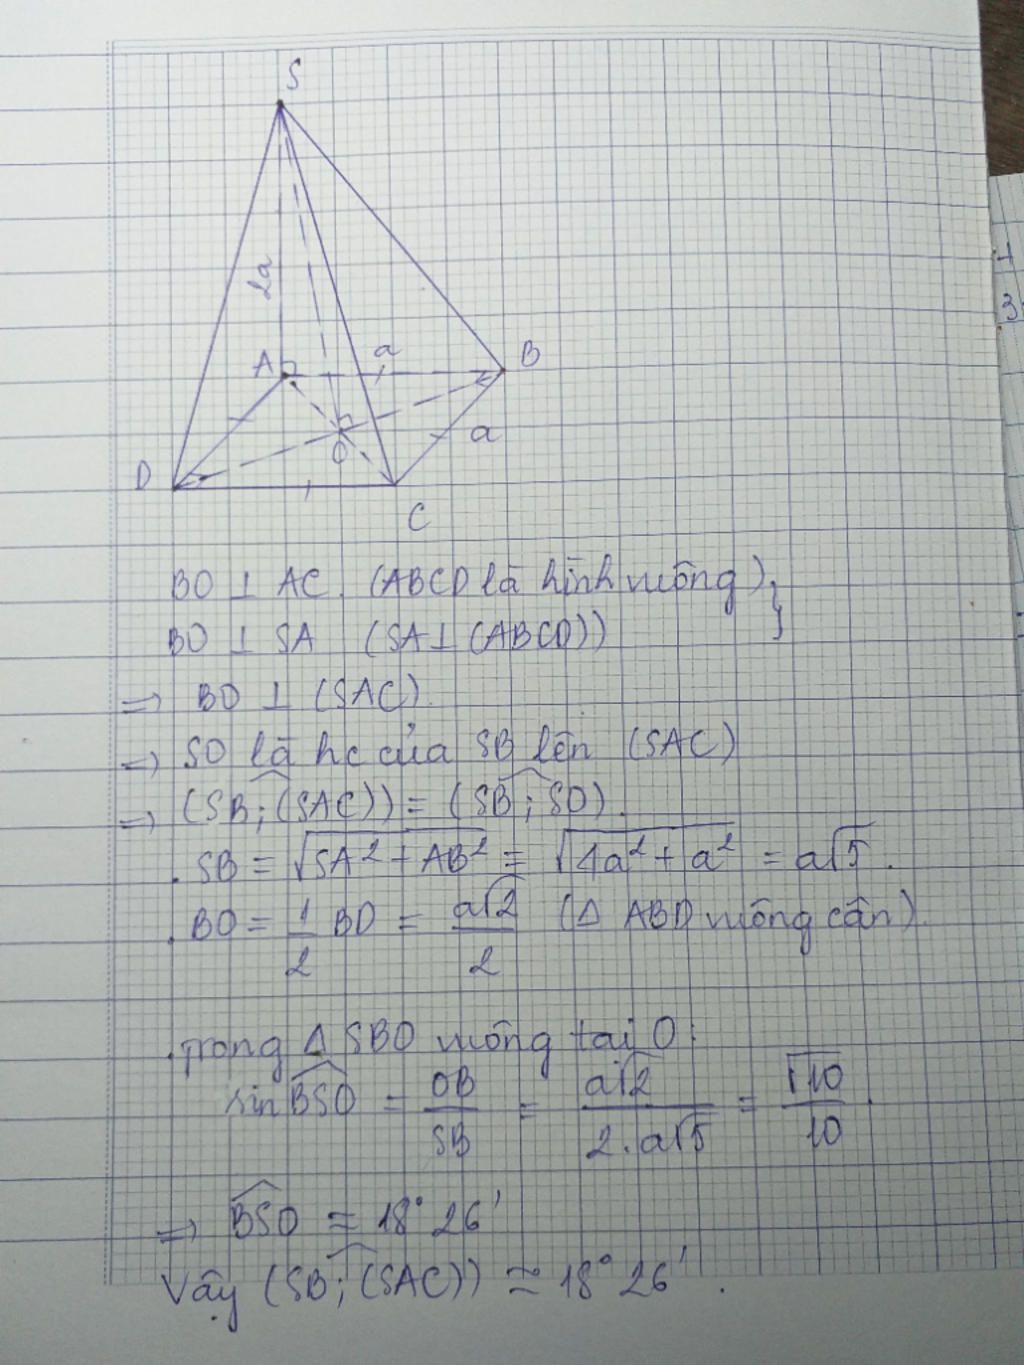 S
2a
A
a
B
a
O
D
C
BO ⊥ AC. (ABCD là hình vuông) }
BO ⊥ SA (SA ⊥ (ABCD))
=> BO ⊥ (SAC).
=> SO là hc của SB lên (SAC)
=> (SB; (SAC))^ = (SB; SO)^.
. SB = √(SA² + AB²) = √(4a² + a²) = a√5.
. BO = 1/2 BD = a√2/2 (Δ ABD vuông cân).
. trong Δ SBO vuông tại O:
sin BSO^ = OB/SB = a√2/2.a√5 = √10/10.
=> BSO^ ≈ 18° 26'
Vậy (SB; (SAC))^ ≈ 18° 26'.
1
3